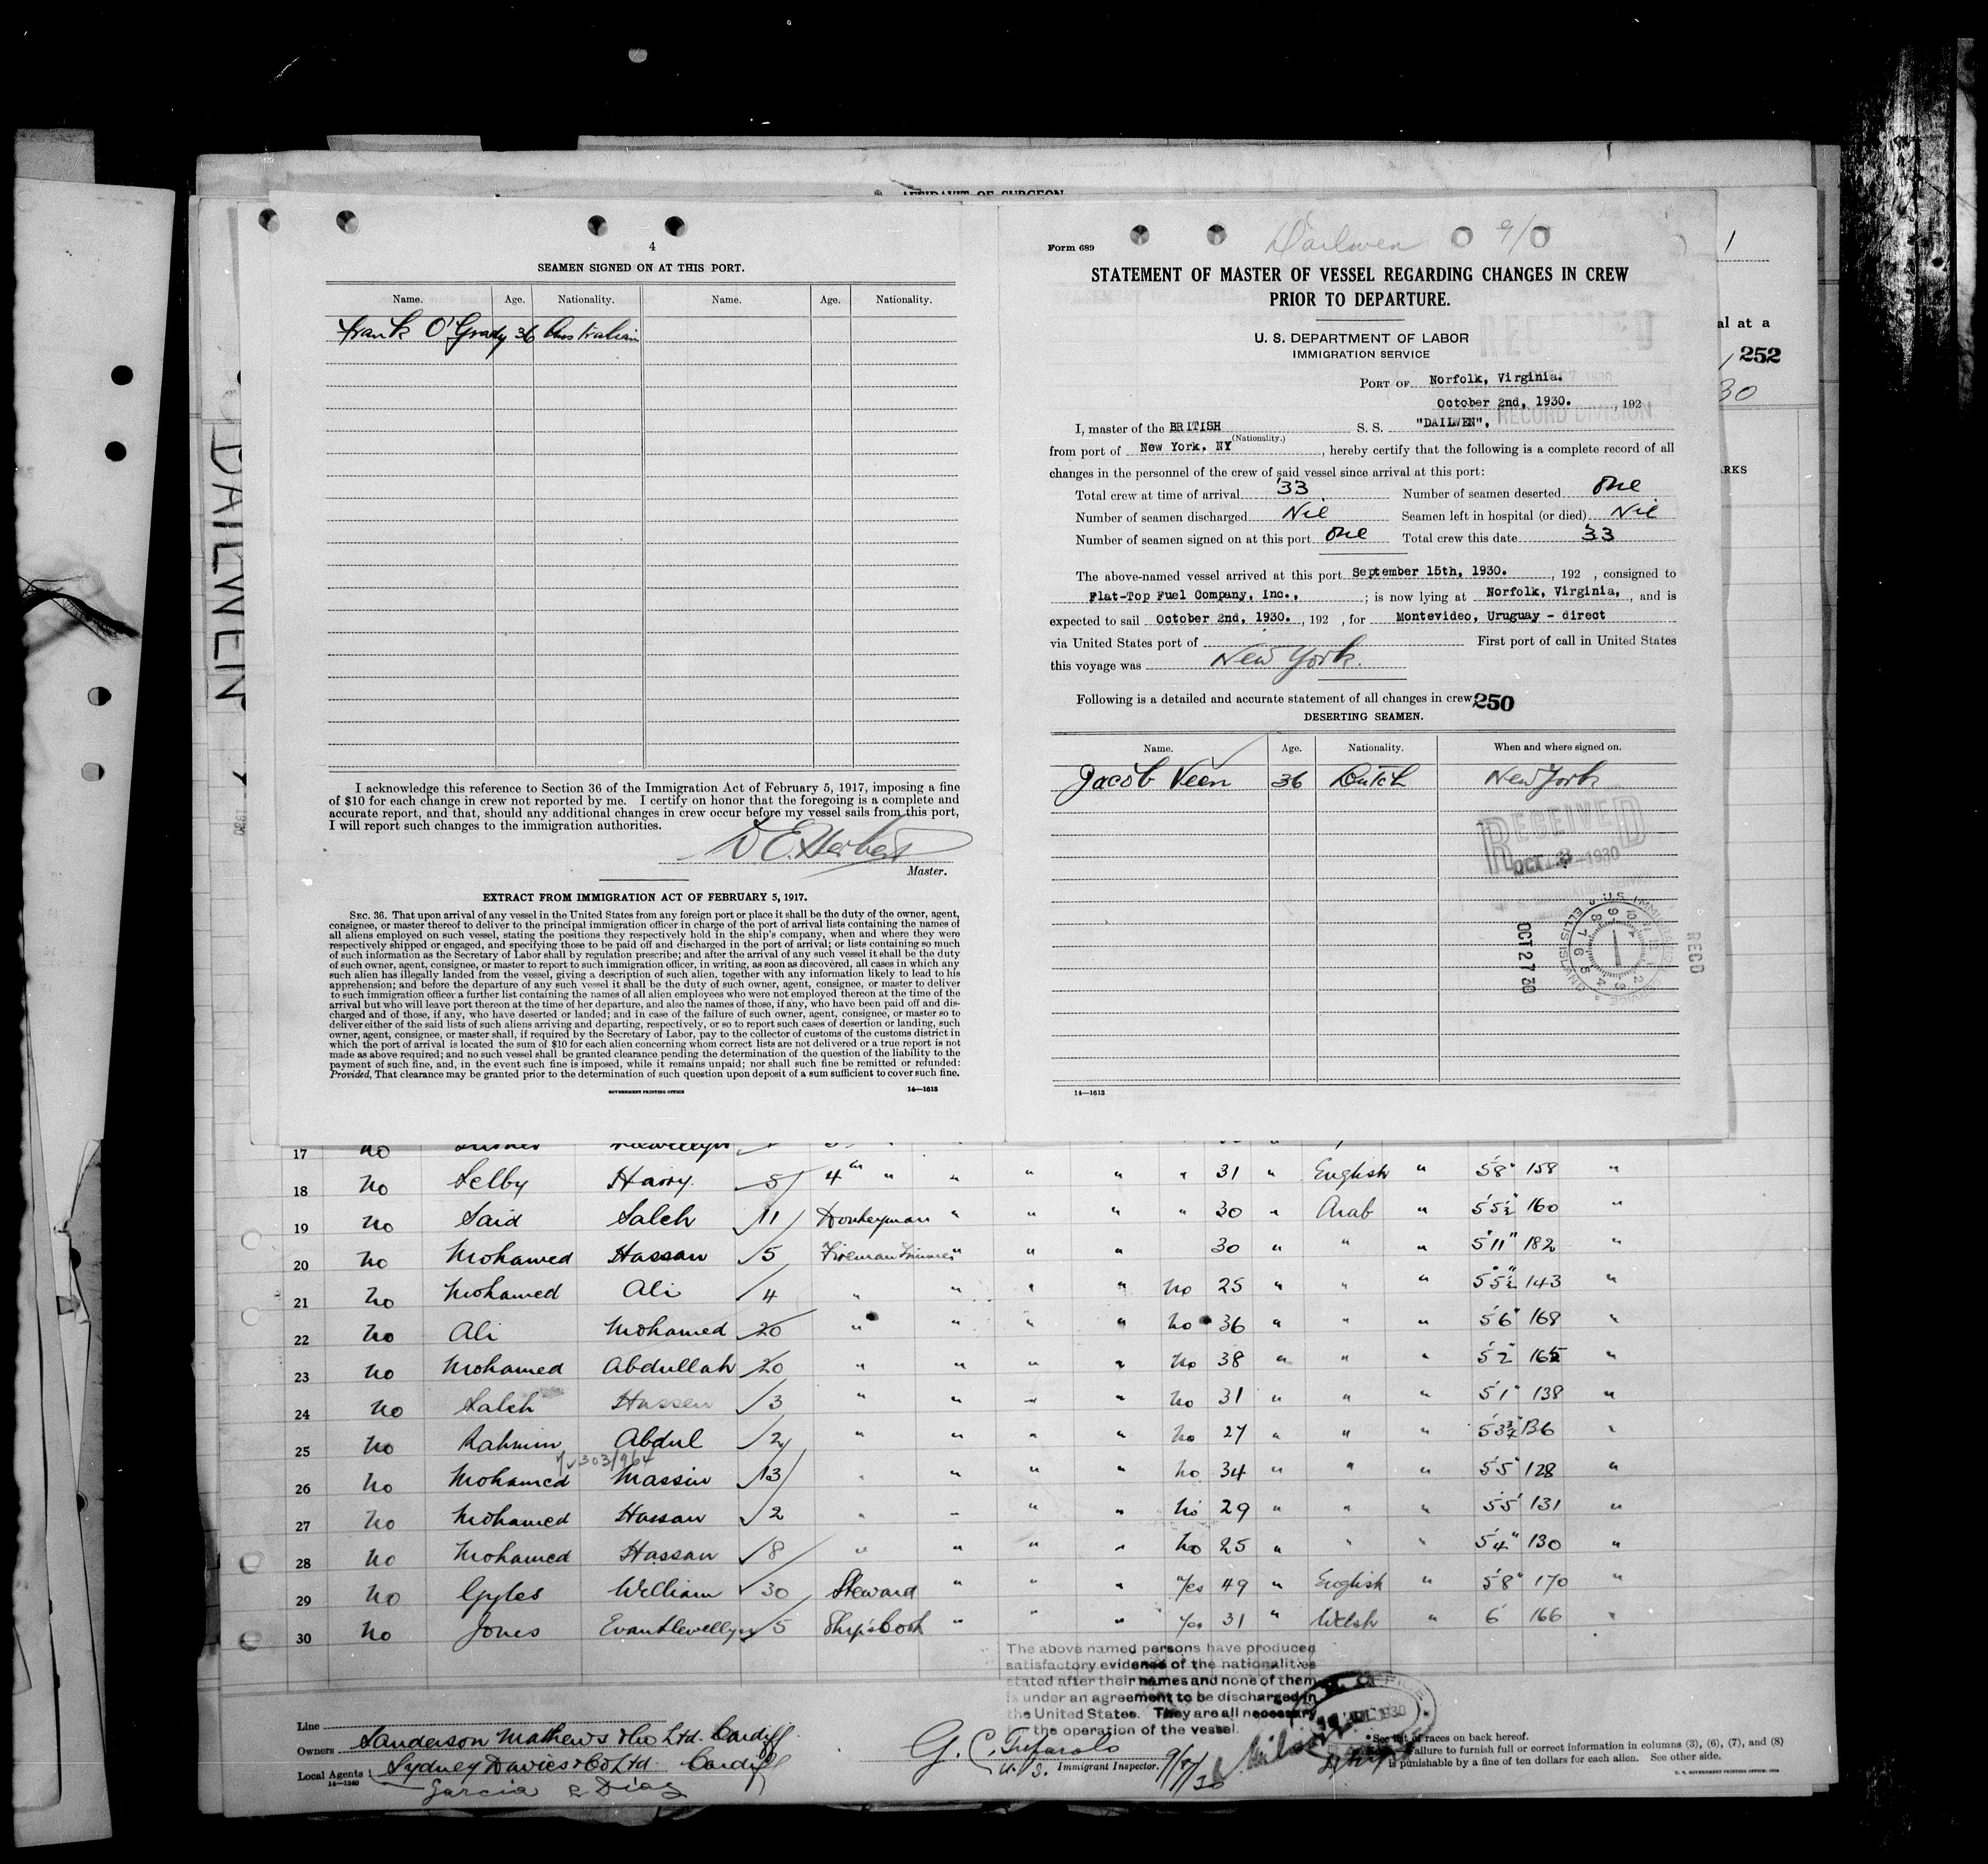 AFFIDAVIT OF SURGEON
4
SEAMEN SIGNED ON AT THIS PORT.
Name. Age. Nationality. Name. Age. Nationality.
Frank O'Grady 36 Australian
I acknowledge this reference to Section 36 of the Immigration Act of February 5, 1917, imposing a fine
of $10 for each change in crew not reported by me. I certify on honor that the foregoing is a complete and
accurate report, and that, should any additional changes in crew occur before my vessel sails from this port,
I will report such changes to the immigration authorities.
D E Herbert
Master.
EXTRACT FROM IMMIGRATION ACT OF FEBRUARY 5, 1917.
SEC. 36. That upon arrival of any vessel in the United States from any foreign port or place it shall be the duty of the owner, agent,
consignee, or master thereof to deliver to the principal immigration officer in charge of the port of arrival lists containing the names of
all aliens employed on such vessel, stating the positions they respectively hold in the ship's company, when and where they were
respectively shipped or engaged, and specifying those to be paid off and discharged in the port of arrival; or lists containing so much
of such information as the Secretary of Labor shall by regulation prescribe; and after the arrival of any such vessel it shall be the duty
of such owner, agent, consignee, or master to report to such immigration officer, in writing, as soon as discovered, all cases in which any
such alien has illegally landed from the vessel, giving a description of such alien, together with any information likely to lead to his
apprehension; and before the departure of any such vessel it shall be the duty of such owner, agent, consignee, or master to deliver
to such immigration officer a further list containing the names of all alien employees who were not employed thereon at the time of the
arrival but who will leave port thereon at the time of her departure, and also the names of those, if any, who have been paid off and dis-
charged and of those, if any, who have deserted or landed; and in case of the failure of such owner, agent, consignee, or master so to
deliver either of the said lists of such aliens arriving and departing, respectively, or so to report such cases of desertion or landing, such
owner, agent, consignee, or master shall, if required by the Secretary of Labor, pay to the collector of customs of the customs district in
which the port of arrival is located the sum of $10 for each alien concerning whom correct lists are not delivered or a true report is not
made as above required; and no such vessel shall be granted clearance pending the determination of the question of the liability to the
payment of such fine, and, in the event such fine is imposed, while it remains unpaid; nor shall such fine be remitted or refunded:
Provided, That clearance may be granted prior to the determination of such question upon deposit of a sum sufficient to cover such fine.
GOVERNMENT PRINTING OFFICE 14—1613
DAILWEN
Form 689 Dailwen 9/
STATEMENT OF MASTER OF VESSEL REGARDING CHANGES IN CREW
PRIOR TO DEPARTURE.
U. S. DEPARTMENT OF LABOR
IMMIGRATION SERVICE
RECEIVED
RECORD DIVISION
PORT OF Norfolk, Virginia.
October 2nd, 1930. , 192
I, master of the BRITISH S. S. "DAILWEN",
(Nationality.)
from port of New York. NY , hereby certify that the following is a complete record of all
changes in the personnel of the crew of said vessel since arrival at this port:
Total crew at time of arrival 33 Number of seamen deserted One
Number of seamen discharged Nil Seamen left in hospital (or died) Nil
Number of seamen signed on at this port One Total crew this date 33
The above-named vessel arrived at this port September 15th, 1930. , 192 , consigned to
Flat-Top Fuel Company, Inc., ; is now lying at Norfolk, Virginia, , and is
expected to sail October 2nd, 1930. , 192 , for Montevideo, Uruguay - direct
via United States port of First port of call in United States
this voyage was New York.
Following is a detailed and accurate statement of all changes in crew: 250
DESERTING SEAMEN.
Name. Age. Nationality. When and where signed on.
Jacob Veen 36 Dutch New York
RECEIVED
OCT 3 1930
OCT 27 30
U.S. IMMIGRATION SERVICE ELLIS ISLAND
RECD
14—1613
1
al at a
252
30
RKS
17 no
18 no Selby Harry 5 4th " " " " " 31 " English " 5'8" 158 "
19 no Said Saleh 11 Donkeyman " " " " 30 " Arab " 5'5½" 160 "
20 no Mohamed Hassan 5 Fireman Trimmer " " " 30 " " " 5'11" 182 "
21 no Mohamed Ali 4 " " " " no 25 " " " 5'5½" 143 "
22 no Ali Mohamed 20 " " " " no 36 " " " 5'6" 168 "
23 no Mohamed Abdullah 20 " " " " no 38 " " " 5'2" 165 "
24 no Saleh Hassen 3 " " " " no 31 " " " 5'1" 138 "
25 no Rahmin Abdul 2 " " " " no 27 " " " 5'3¾" 136 "
26 no Mohamed Massin 13 " " " " no 34 " " " 5'5" 128 "
27 no Mohamed Hassan 2 " " " " no 29 " " " 5'5" 131 "
28 no Mohamed Hassan 8 " " " " no 25 " " " 5'4" 130 "
29 no Gyles William 30 Steward " " " yes 49 " English " 5'8" 170 "
30 no Jones Evan Llewellyn 5 Ship's Cook " " " yes 31 " Welsh " 6' 166 "
The above named persons have produced
satisfactory evidence of the nationalities
stated after their names and none of them
is under an agreement to be discharged in
the United States. They are all necessary
the operation of the vessel.
Line
Owners Sanderson Mathews & Co Ltd. Cardiff
Local Agents Sydney Davies & Co Ltd Cardiff
14—1240
Garcia & Diaz
G. C.
U. S. Immigrant Inspector.
*See list of races on back hereof.
Failure to furnish full or correct information in columns (3), (6), (7), and (8)
is punishable by a fine of ten dollars for each alien. See other side.